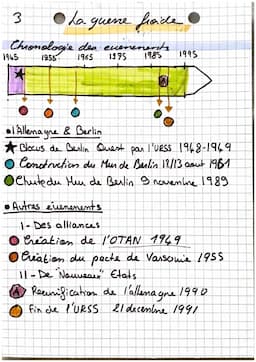 3
La guerre froide
Chronologie des evenements
1945 1955 1965 1975 1985 1995
A
• l'Allemagne & Berlin
★ Blocus de Berlin Ouest par l'URSS 1948-1949
Construction du Mur de Berlin 12/13 aout 1961
Chute du Mur de Berlin 9 novembre 1989
• Autres évenements
I - Des alliances
Création de l'OTAN 1949
Création du pacte de Varsovie 1955
II - De "Nouveaux" Etats
A Reunification de l'allemagne 1990
Fin de l'URSS 21 decembre 1991